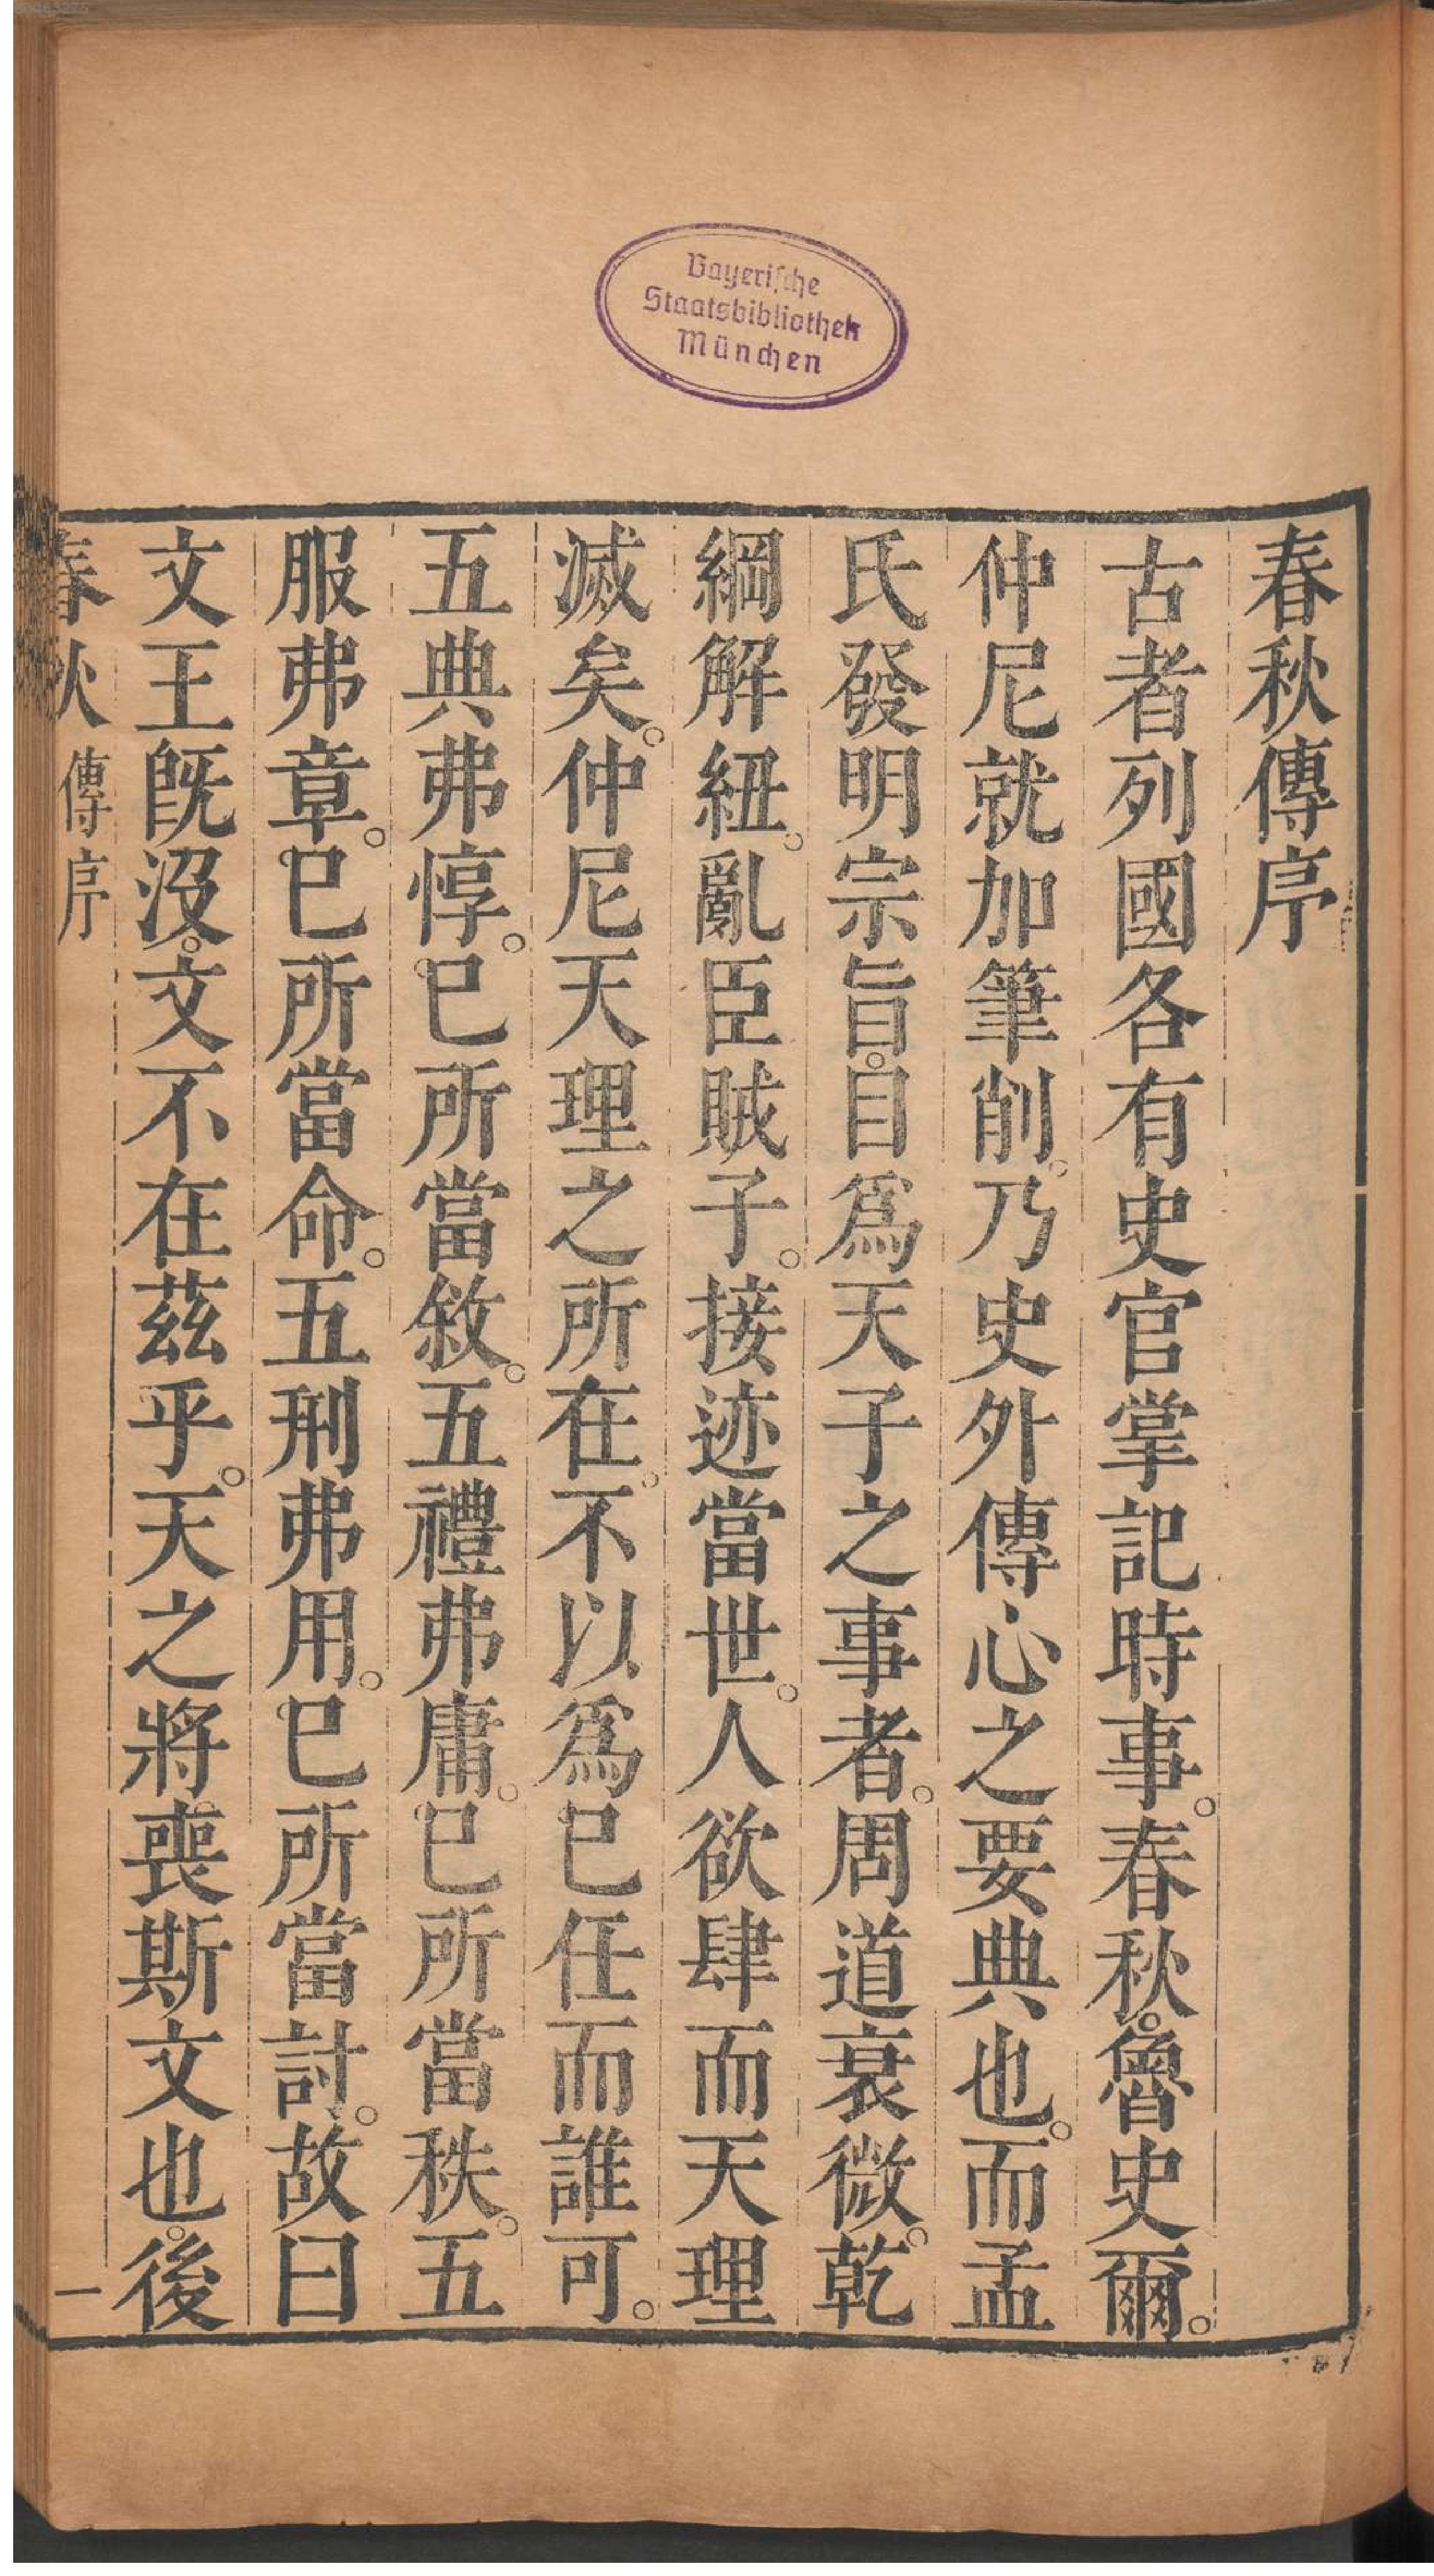 Bayerische
Staatsbibliothek
München
春秋傳序
古者列國各有史官掌記時事。春秋。魯史爾。
仲尼就加筆削。乃史外傳心之要典也。而孟
氏發明宗旨。目爲天子之事者。周道衰微。乾
綱解紐。亂臣賊子。接迹當世。人欲肆而天理
滅矣。仲尼天理之所在。不以爲巳任而誰可。
五典弗惇。巳所當敘。五禮弗庸。巳所當秩。五
服弗章。巳所當命。五刑弗用。巳所當討。故曰
文王旣沒。文不在茲乎。天之將喪斯文也。後
春秋 傳序 一